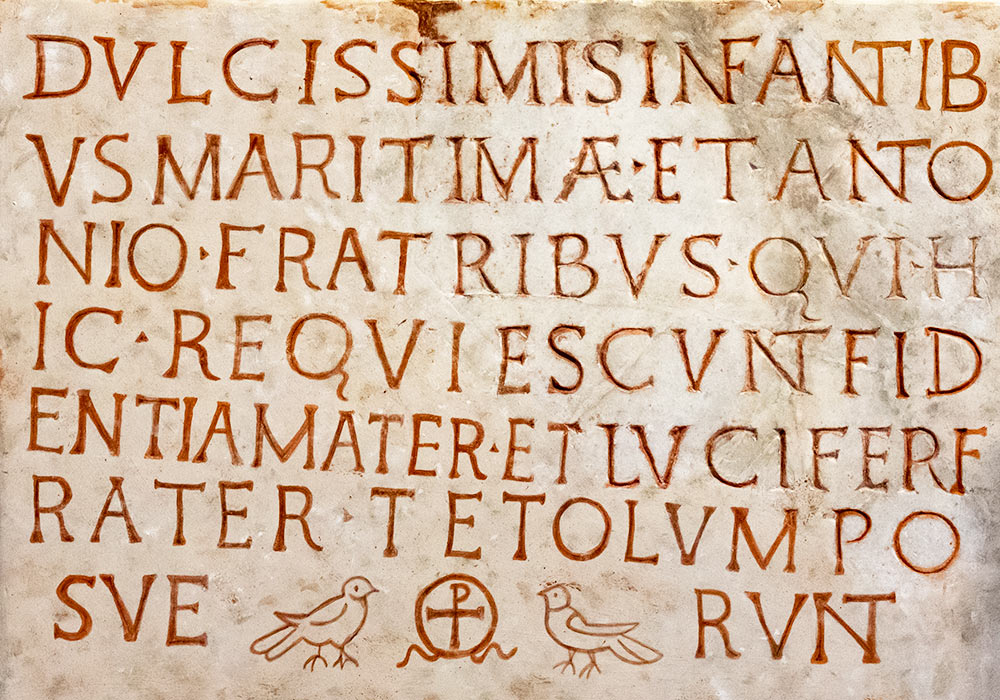 DVLCISSIMISINFANTIB
VSMARITIMÆ·ET·ANTO
NIO·FRATRIBVS·QVI·H
IC·REQVIESCVNTFID
ENTIAMATER·ETLVCIFERF
RATER·TETOLVMPO
SVE RVNT